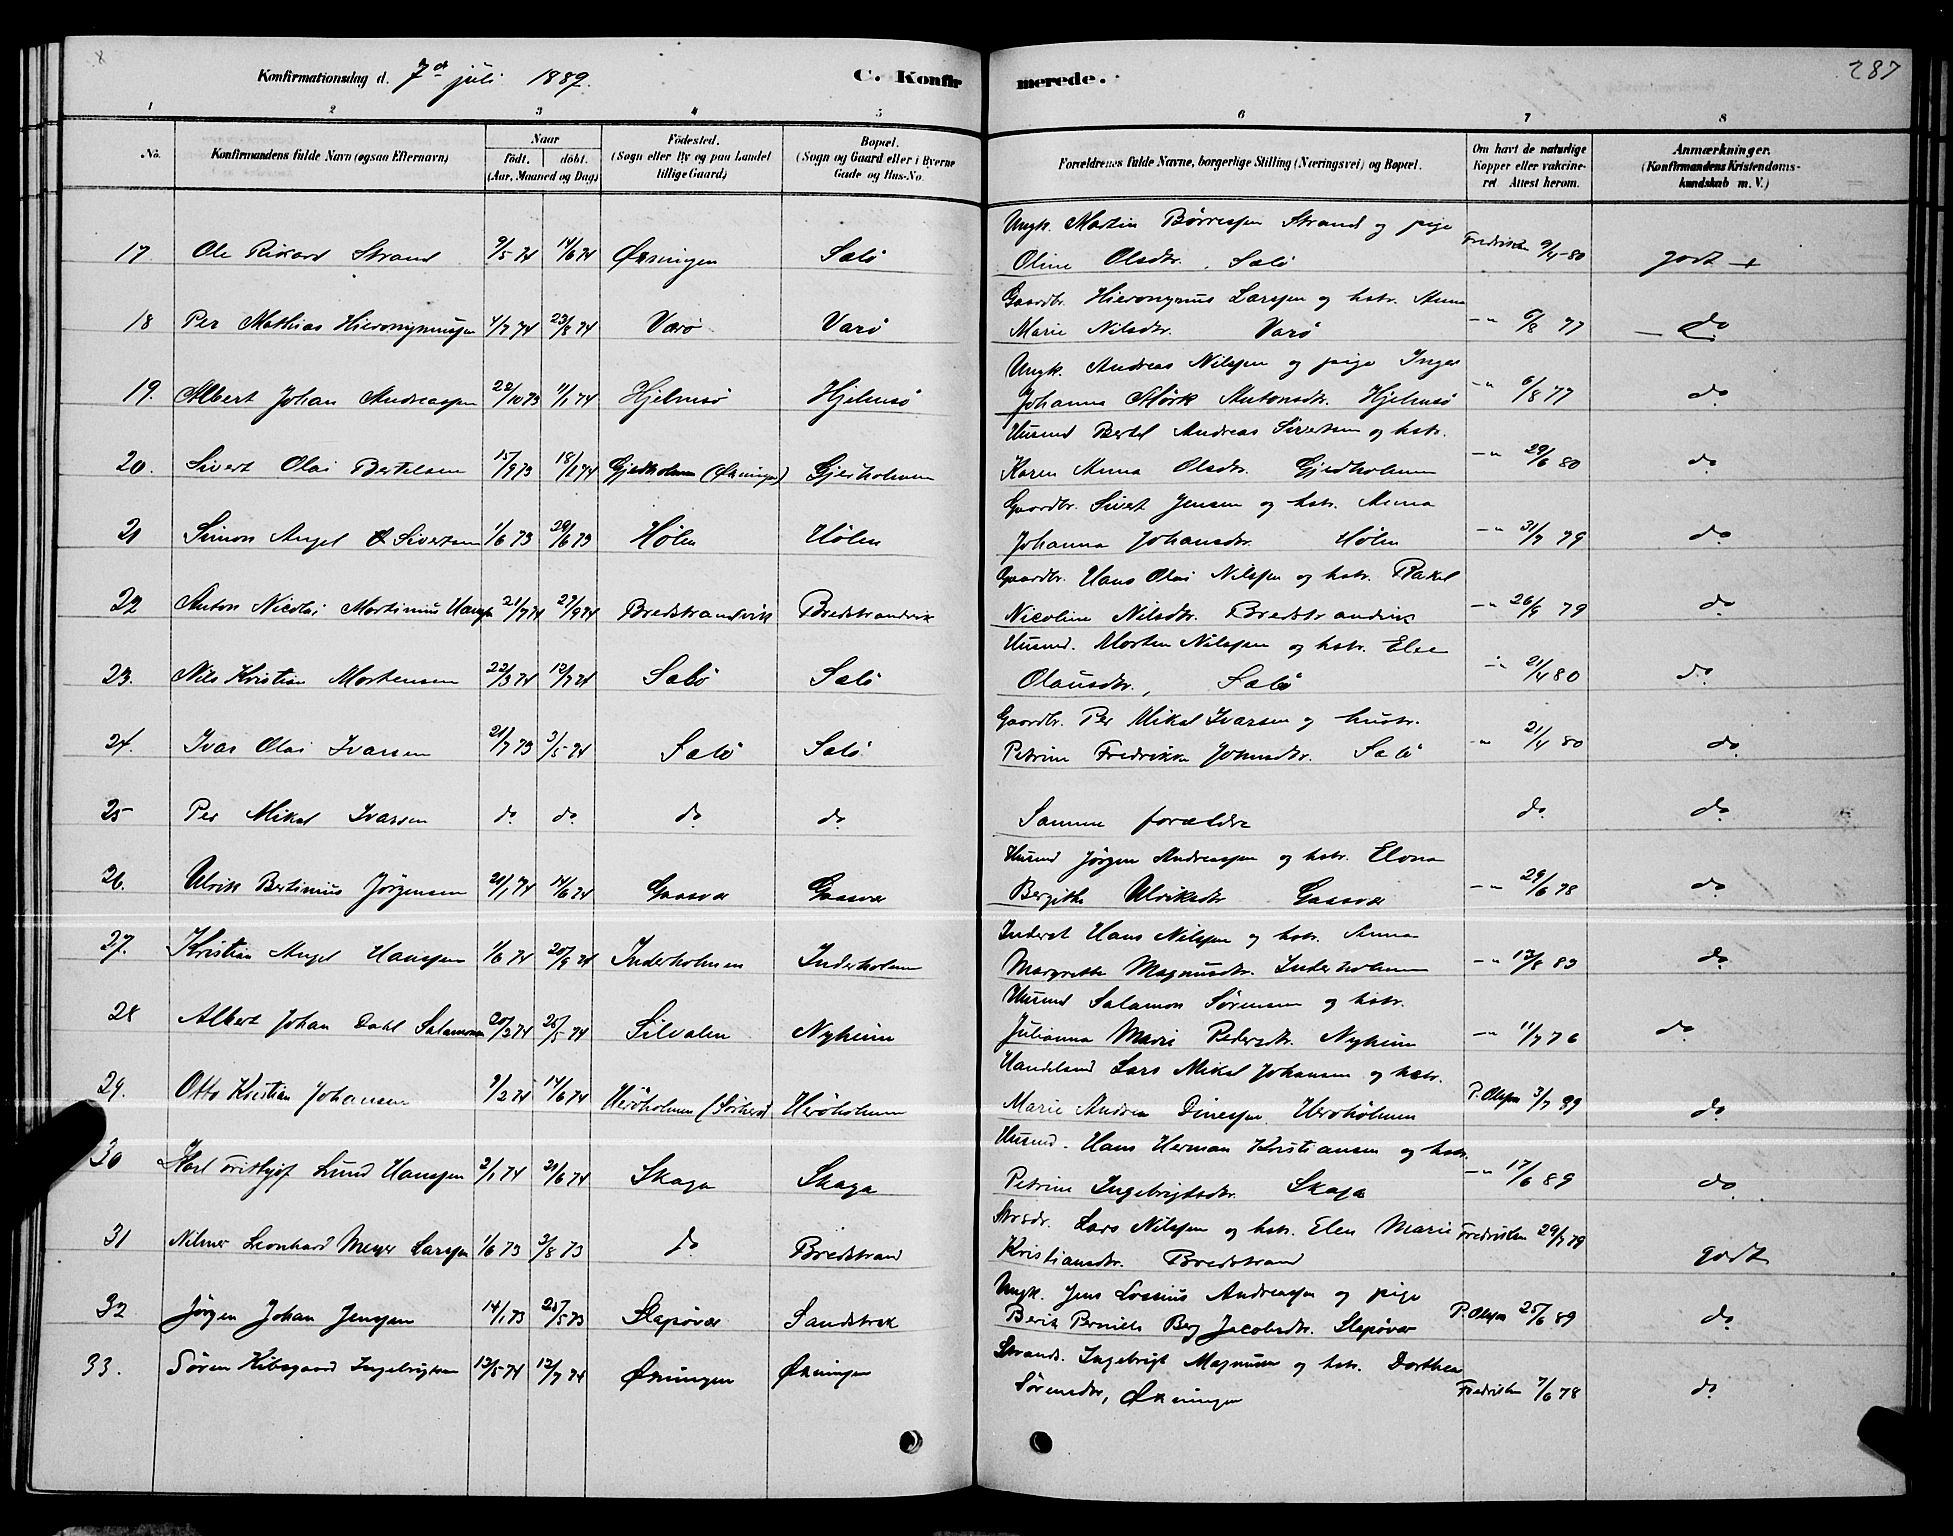 Konfirmationsdag d. 7d juli 1889.
C. Konfirmerede.
287
1 2 3 4 5 6 7 8
No. Konfirmandens fulde Navn (ogsaa Efternavn) Naar födt. döbt. (Aar, Maaned og Dag) Födested. (Sogn eller By og paa Landet tillige Gaard) Bopæl. (Sogn og Gaard eller i Byerne Gade og Hus-No. Forældrenes fulde Navne, borgerlige Stilling (Næringsvei) og Bopæl. Om havt de naturlige Kopper eller vakcineret Attest herom. Anmærkninger. (Konfirmandens Kristendomskundskab m. V.)
Ungk. Martin Børresen Strand og pige
17 Ole Rikard Strand 9/5 74 14/6 74 Øksningen Salø Oline Olsdtr. Salø Fredriksen 9/4-80 godt +
Gaardbr. Hieronymus Larssen og hstr. Anna
18 Per Mathias Hieronymussen 4/7 74 23/8 74 Varø Varø Marie Nilsdtr. Varø -"- 6/8 77 do
Ungk. Andreas Nilssen og pige Inger
19. Albert Johan Andreassen 22/10 73 11/1 74 Hjelmsø Hjelmsø Johanna Størk Antonsdtr. Hjelmsø -"- 6/8 77 do
Husmd Bertel Andreas Sivertsen og hstr.
20. Sivert Olai Bertelsen 15/9 73 18/1 74 Gjedholmen (Øksningen) Gjedholmen Karen Anna Olsdtr. Gjedholmen -"- 29/6 80 do
Gaardbr. Sivert Jensen og hstr. Anna
21 Simon Angel Sivertsen 1/6 73 29/6 73 Hølen Hølen Johanna Johansdtr. Hølen -"- 31/7 79 do
Gaardbr. Hans Olai Nilssen og hstr. Rakel
22 Anton Nicolai Martinius Hanssen 21/7 74 27/9 74 Bredstrandvik Bredstrandvik Nicoline Nilsdtr. Bredstrandvik -"- 26/9 79 do
Husmd. Morten Nilssen og hstr. Else
23. Nils Kristian Mortensen 22/3 74 12/7 74 Salø Salø Olausdtr., Salø -"- 21/4 80 do.
Gaardbr. Per Mikal Ivarsen og hustr.
24. Ivar Olai Ivarsen 21/7 73 3/5 74 Salø Salø Petrine Fredrikke Johnsdtr. Salø -"- 21/4 80 do.
25 Per Mikal Ivarsen do. do. do do Samme forældre do. do.
Husmd Jørgen Andreassen og hstr. Elena
26. Ulrik Bertinius Jørgensen 21/1 74 14/6 74 Gaasvær Gaasvær Bergithe Ulriksdtr Gaasvær -"- 29/6 78 do
Inderst Hans Nilssen og hstr. Anna
27. Kristian Angel Hanssen 1/6 74 20/9 74 Inderholmen Inderholmen Margrethe Magnusdtr. Inderholmen -"- 12/8 83 do.
Husmd Salamon Sørensen og hstr.
28 Albert Johan Dahl Salamonsen 20/2 74 25/5 74 Silvalen Nyheim Julianna Marie Pedersdtr. Nyheim -"- 11/7 76 do.
Handelsmd Lars Mikal Johansen og hstr.
29. Otto Kristian Johansen 9/2 74 14/6 74 Herøholmen Herøholmen Marie Andrea Dinessen Herøholmen P. Olssen 3/7 89 do
Husmd. Hans Herman Kristiansen og hstr.
30 Karl Fritthjof Lund Hanssen 2/1 74 21/6 74 Skaga Skaga Petrine Ingebrigtsdtr. Skaga -"- 17/6 89 do.
Lars Nilssen og hstr. Elen Marie
31 Nilmer Leonhard Meyer Larssen 1/6 73 3/8 73 do Bredstrand Kristiansdtr. Bredstrand Fredriksen 29/7 79 godt
Ungk. Jens Lossius Andreassen og pige
32 Jørgen Johan Jenssen 14/1 73 25/5 73 Slapøvær Sandstrak Berit Pernille Berg Jacobsdtr. Slapøvær P. Olssen 25/6 89 do.
Strands. Ingebrigt Magnusen og hstr. Dorthea
33. Søren Kibsgaard Ingebrigtsen 12/5 74 12/7 74 Øksningen Øksningen Sørensdtr, Øksningen Fredriksen 7/6 78 do.